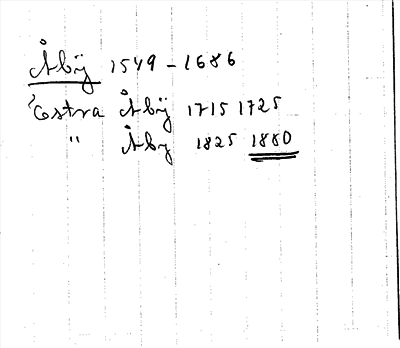 Åbÿ 1549 - 1686
Östra Åbÿ 1715 1725
" Åby 1825 1880